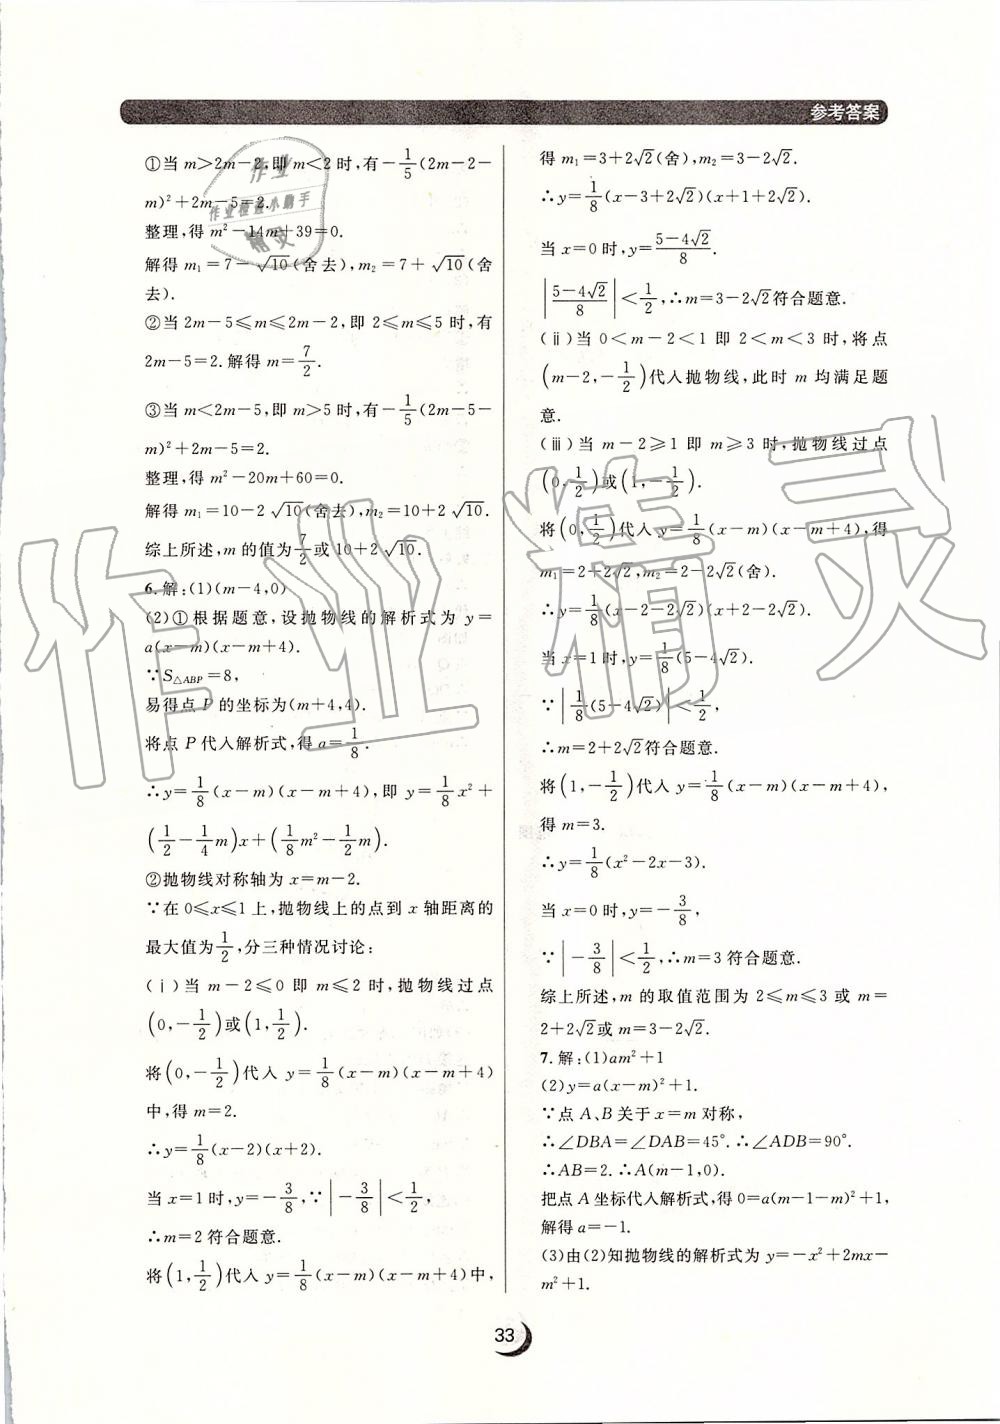 参考答案
①当 m>2m-2,即 m<2 时,有-1/5(2m-2-
m)²+2m-5=2.
整理,得 m²-14m+39=0.
解得 m₁=7-√10(舍去),m₂=7+√10(舍
去).
②当 2m-5≤m≤2m-2,即 2≤m≤5 时,有
2m-5=2.解得 m=7/2.
③当 m<2m-5,即 m>5 时,有-1/5(2m-5-
m)²+2m-5=2.
整理,得 m²-20m+60=0.
解得 m₁=10-2√10(舍去),m₂=10+2√10.
综上所述,m 的值为7/2或 10+2√10.
6.解:(1)(m-4,0)
(2)①根据题意,设抛物线的解析式为 y=
a(x-m)(x-m+4).
∵S△ABP=8,
易得点 P 的坐标为(m+4,4).
将点 P 代入解析式,得 a=1/8.
∴y=1/8(x-m)(x-m+4),即 y=1/8x²+
(1/2-1/4m)x+(1/8m²-1/2m).
②抛物线对称轴为 x=m-2.
∵在 0≤x≤1 上,抛物线上的点到 x 轴距离的
最大值为1/2,分三种情况讨论:
(ⅰ)当 m-2≤0 即 m≤2 时,抛物线过点
(0,-1/2)或(1,1/2).
将(0,-1/2)代入 y=1/8(x-m)(x-m+4)
中,得 m=2.
∴y=1/8(x-2)(x+2).
当 x=1 时,y=-3/8,∵|-3/8|<1/2,
∴m=2 符合题意.
将(1,1/2)代入 y=1/8(x-m)(x-m+4)中,
得 m₁=3+2√2(舍),m₂=3-2√2.
∴y=1/8(x-3+2√2)(x+1+2√2).
当 x=0 时,y=(5-4√2)/8.
|(5-4√2)/8|<1/2,∴m=3-2√2符合题意.
(ⅱ)当 0<m-2<1 即 2<m<3 时,将点
(m-2,-1/2)代入抛物线,此时 m 均满足题
意.
(ⅲ)当 m-2≥1 即 m≥3 时,抛物线过点
(0,1/2)或(1,-1/2).
将(0,1/2)代入 y=1/8(x-m)(x-m+4),得
m₁=2+2√2,m₂=2-2√2(舍).
∴y=1/8(x-2-2√2)(x+2-2√2).
当 x=1时,y=1/8(5-4√2).
∵|1/8(5-4√2)|<1/2,
∴m=2+2√2符合题意.
将(1,-1/2)代入 y=1/8(x-m)(x-m+4),
得 m=3.
∴y=1/8(x²-2x-3).
当 x=0时,y=-3/8,
∵|-3/8|<1/2,∴m=3 符合题意.
综上所述,m 的取值范围为 2≤m≤3 或 m=
2+2√2或 m=3-2√2.
7.解:(1)am²+1
(2)y=a(x-m)²+1.
∵点 A、B 关于 x=m 对称,
∴∠DBA=∠DAB=45°.∴∠ADB=90°.
∴AB=2.∴A(m-1,0).
把点 A 坐标代入解析式,得 0=a(m-1-m)²+1,
解得 a=-1.
(3)由(2)知抛物线的解析式为 y=-x²+2mx-
m²+1.
33
作业
作业检查小助手
精灵
作业精灵